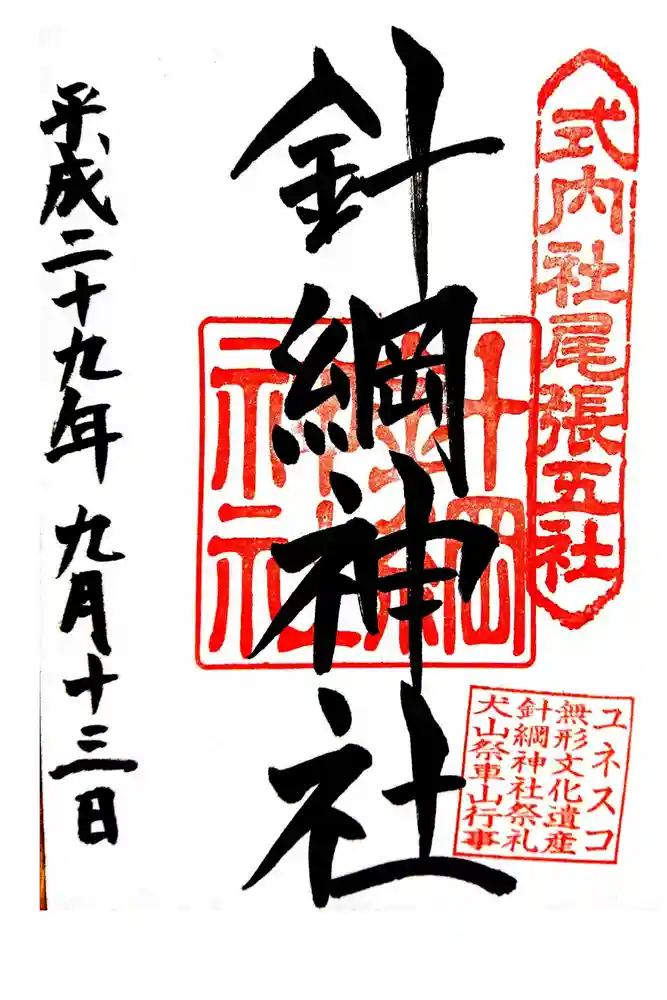 式内社尾張五社
針綱神社
針綱
神社
ユネスコ
無形文化遺産
針綱神社祭礼
犬山祭車山行事
平成二十九年九月十三日